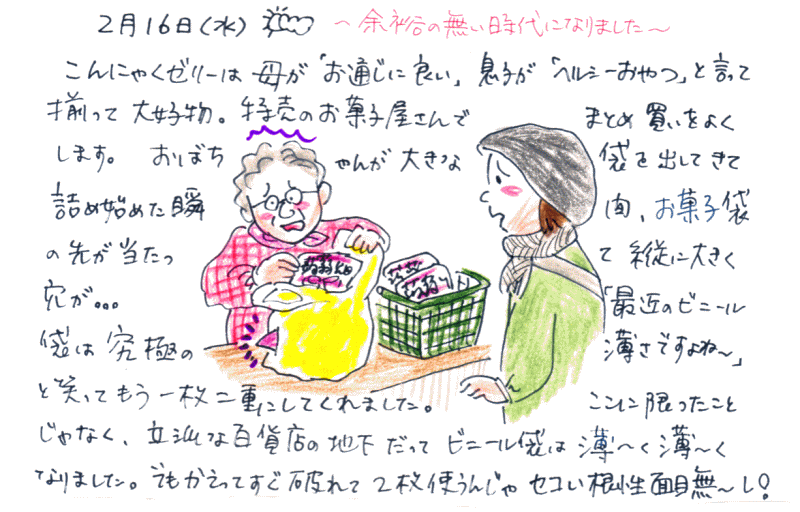 2月16日(水) ～余裕の無い時代になりました～
こんにゃくゼリーは母が「お通じに良い」息子が「ヘルシーおやつ」と言って
揃って大好物。特売のお菓子屋さんでまとめ買いをよく
します。おばちゃんが大きな袋を出してきて
詰め始めた瞬間、お菓子袋
の先が当たって縦に大きく
穴が...「最近のビニール
袋は究極の薄さですよね～」
と笑ってもう一枚二重にしてくれました。ここに限ったこと
じゃなく、立派な百貨店の地下だってビニール袋は薄～く薄～く
なりました。でもかえってすぐ破れて2枚使うんじゃセコい根性面目無～し!